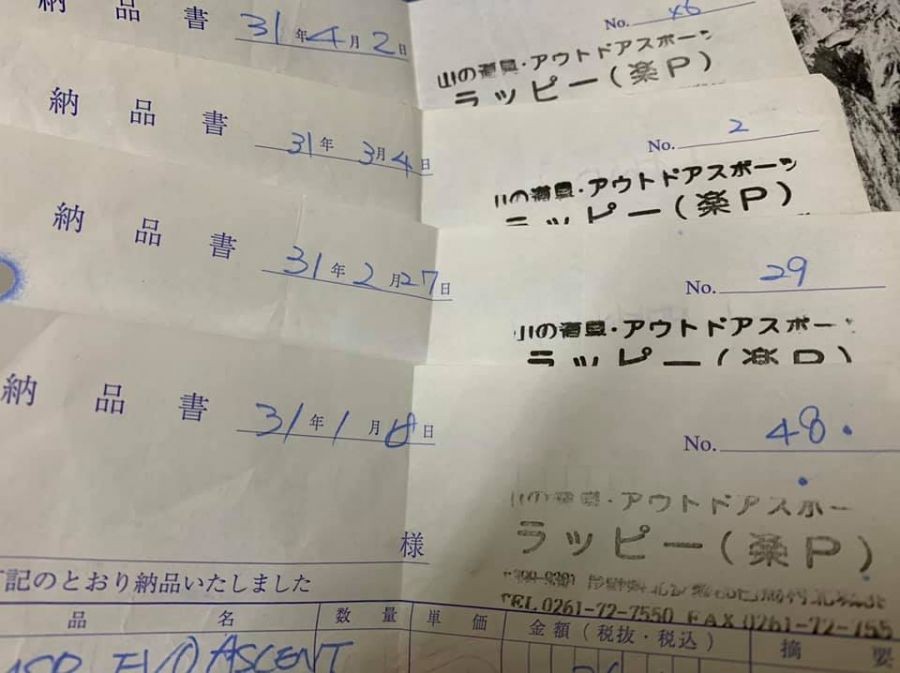 納品書
31年4月2日
No. 46
山の道具・アウトドアスポーツ
ラッピー(楽P)
納品書
31年 3月4日
No. 2
山の道具・アウトドアスポーツ
ラッピー(楽P)
納品書
31年2月27日
No. 29
山の道具・アウトドアスポーツ
ラッピー(楽P)
納品書
31年1月8日
No. 48.
山の道具・アウトドアスポー
ラッピー(楽P)
様
TEL 0261-72-7550 FAX 0261-72-755
記のとおり納品いたしました
品 名 数 量 単 価 金 額 (税抜・税込) 摘 要
EVO ASCENT